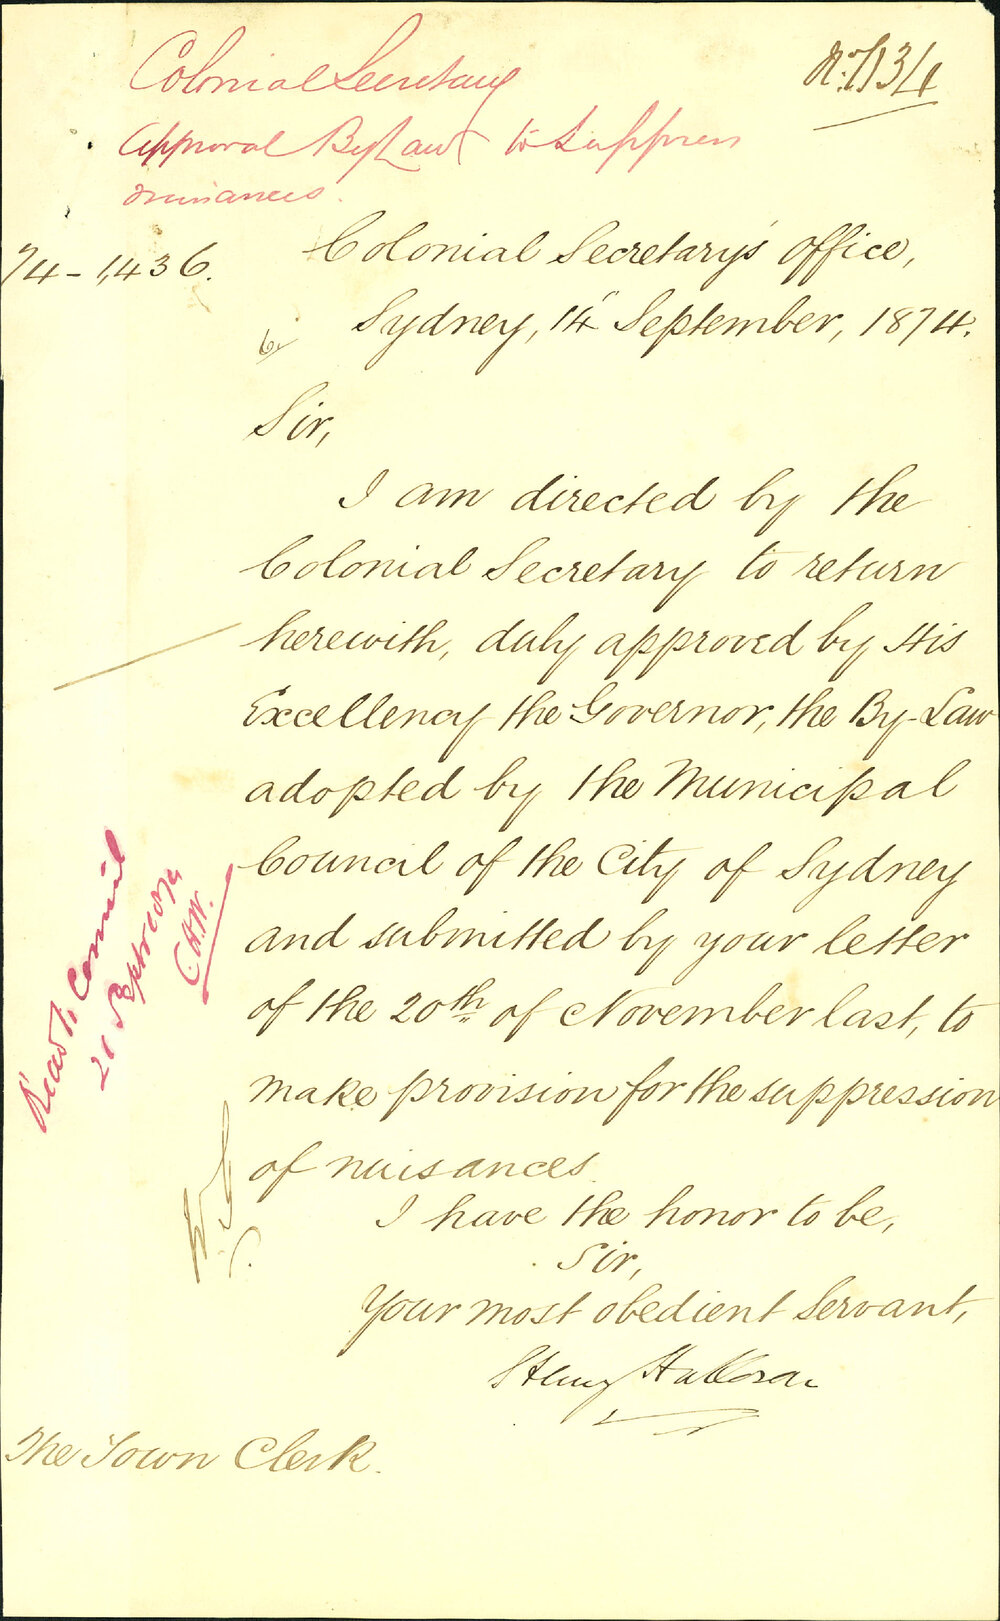 Colonial Secretary
Approval By Law to Suppress
nuisances.
74-1,436.
Colonial Secretary's Office,
Sydney, 14" September, 1874.
Sir,
I am directed by the
Colonial Secretary to return
herewith, duly approved by His
Excellency the Governor, the By-Law
adopted by the Municipal
Council of the City of Sydney
and submitted by your letter
of the 20th of November last, to
make provision for the suppression
of nuisances.
I have the honor to be,
Sir,
Your most obedient Servant,
Henry Halloran
The Town Clerk.
Read in Council
21 Septr 1874
C.H.W.